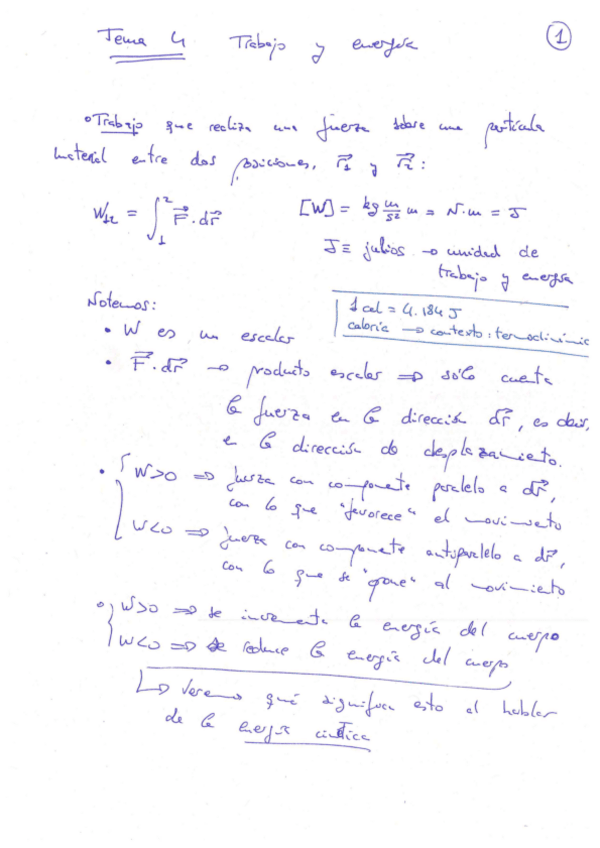 Tema 4 Trabajo y energía
1
• Trabajo que realiza una fuerza sobre una partícula
material entre dos posiciones, r⃗₁ y r⃗₂:
W₁₂ = ∫₁² F⃗ · dr⃗
[W] = kg m/s² m = N·m = J
J ≡ julios → unidad de
trabajo y energía
1 cal = 4.184 J
caloría → contexto: termodinámic
Notemos:
• W es un escalar
• F⃗ · dr⃗ → producto escalar ⇒ sólo cuenta
la fuerza en la dirección dr⃗, es decir,
en la dirección de desplazamiento.
• { W>0 ⇒ fuerza con componente paralelo a dr⃗,
con lo que "favorece" el movimiento
W<0 ⇒ fuerza con componente antiparalelo a dr⃗,
con lo que se "opone" al movimiento
• { W>0 ⇒ se incrementa la energía del cuerpo
W<0 ⇒ se reduce la energía del cuerpo
↳ Veremo qué significa esto al hablar
de la energía cinética